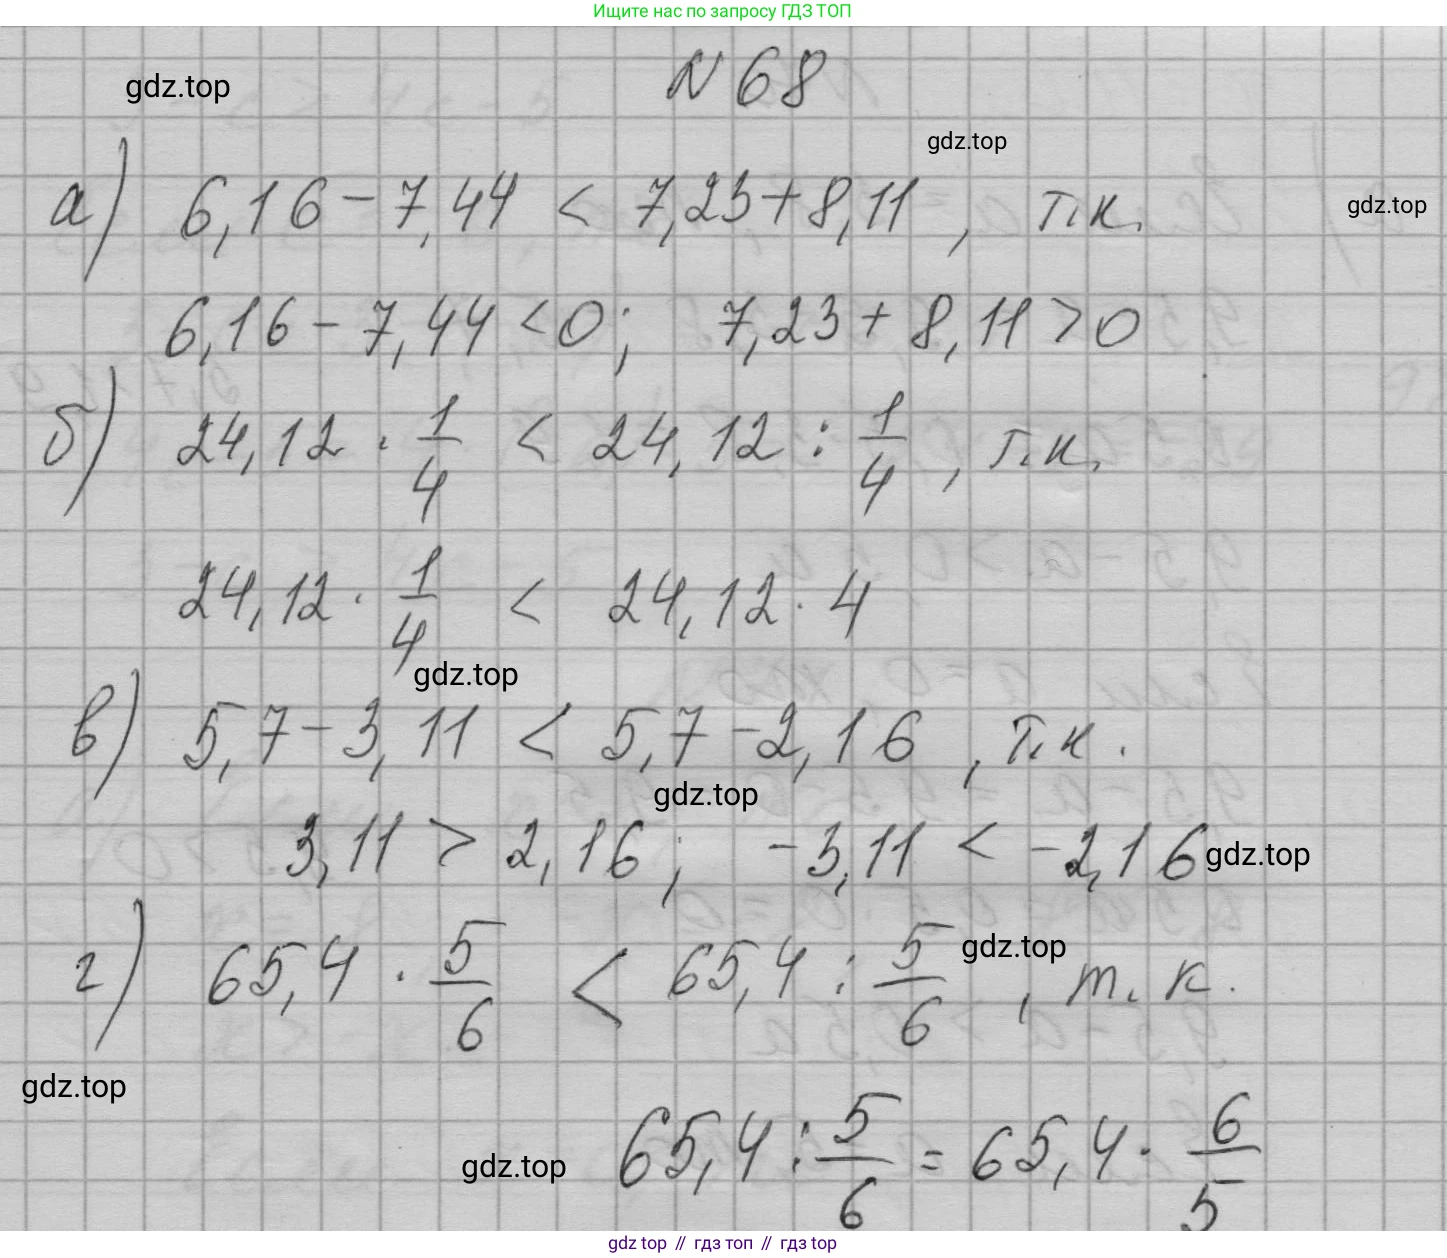 Ищите нас по запросу ГДЗ ТОП
N 68
gdz.top
gdz.top
а) 6,16 - 7,44 < 7,23 + 8,11 , т.к.
gdz.top
6,16 - 7,44 < 0; 7,23 + 8,11 > 0
б) 24,12 · 1/4 < 24,12 : 1/4 , т.к.
24,12 · 1/4 < 24,12 · 4
gdz.top
в) 5,7 - 3,11 < 5,7 - 2,16 , т.к.
gdz.top
3,11 > 2,16; -3,11 < -2,16
gdz.top
г) 65,4 · 5/6 < 65,4 : 5/6 , т.к.
gdz.top
gdz.top
65,4 : 5/6 = 65,4 · 6/5
gdz.top
gdz top // гдз топ // гдз top